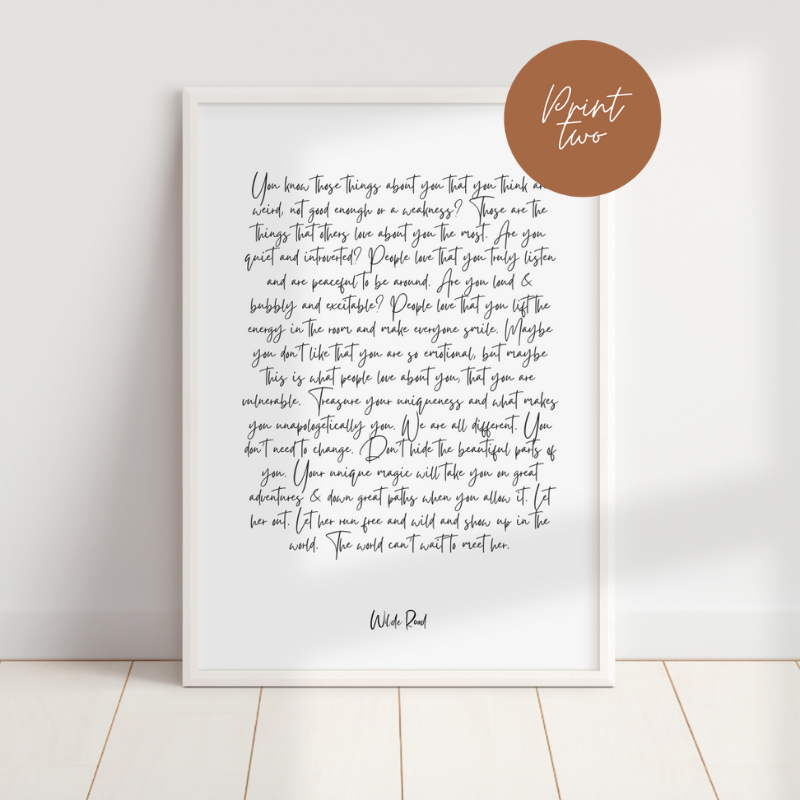 Print
two
You know those things about you that you think are
weird, not good enough or a weakness? Those are the
things that others love about you the most. Are you
quiet and introverted? People love that you truly listen
and are peaceful to be around. Are you loud &
bubbly and excitable? People love that you lift the
energy in the room and make everyone smile. Maybe
you don't like that you are so emotional, but maybe
this is what people love about you, that you are
vulnerable. Treasure your uniqueness and what makes
you unapologetically you. We are all different. You
don't need to change. Don't hide the beautiful parts of
you. Your unique magic will take you on great
adventures & down great paths when you allow it. Let
her out. Let her run free and wild and show up in the
world. The world can't wait to meet her.
Wilde Road